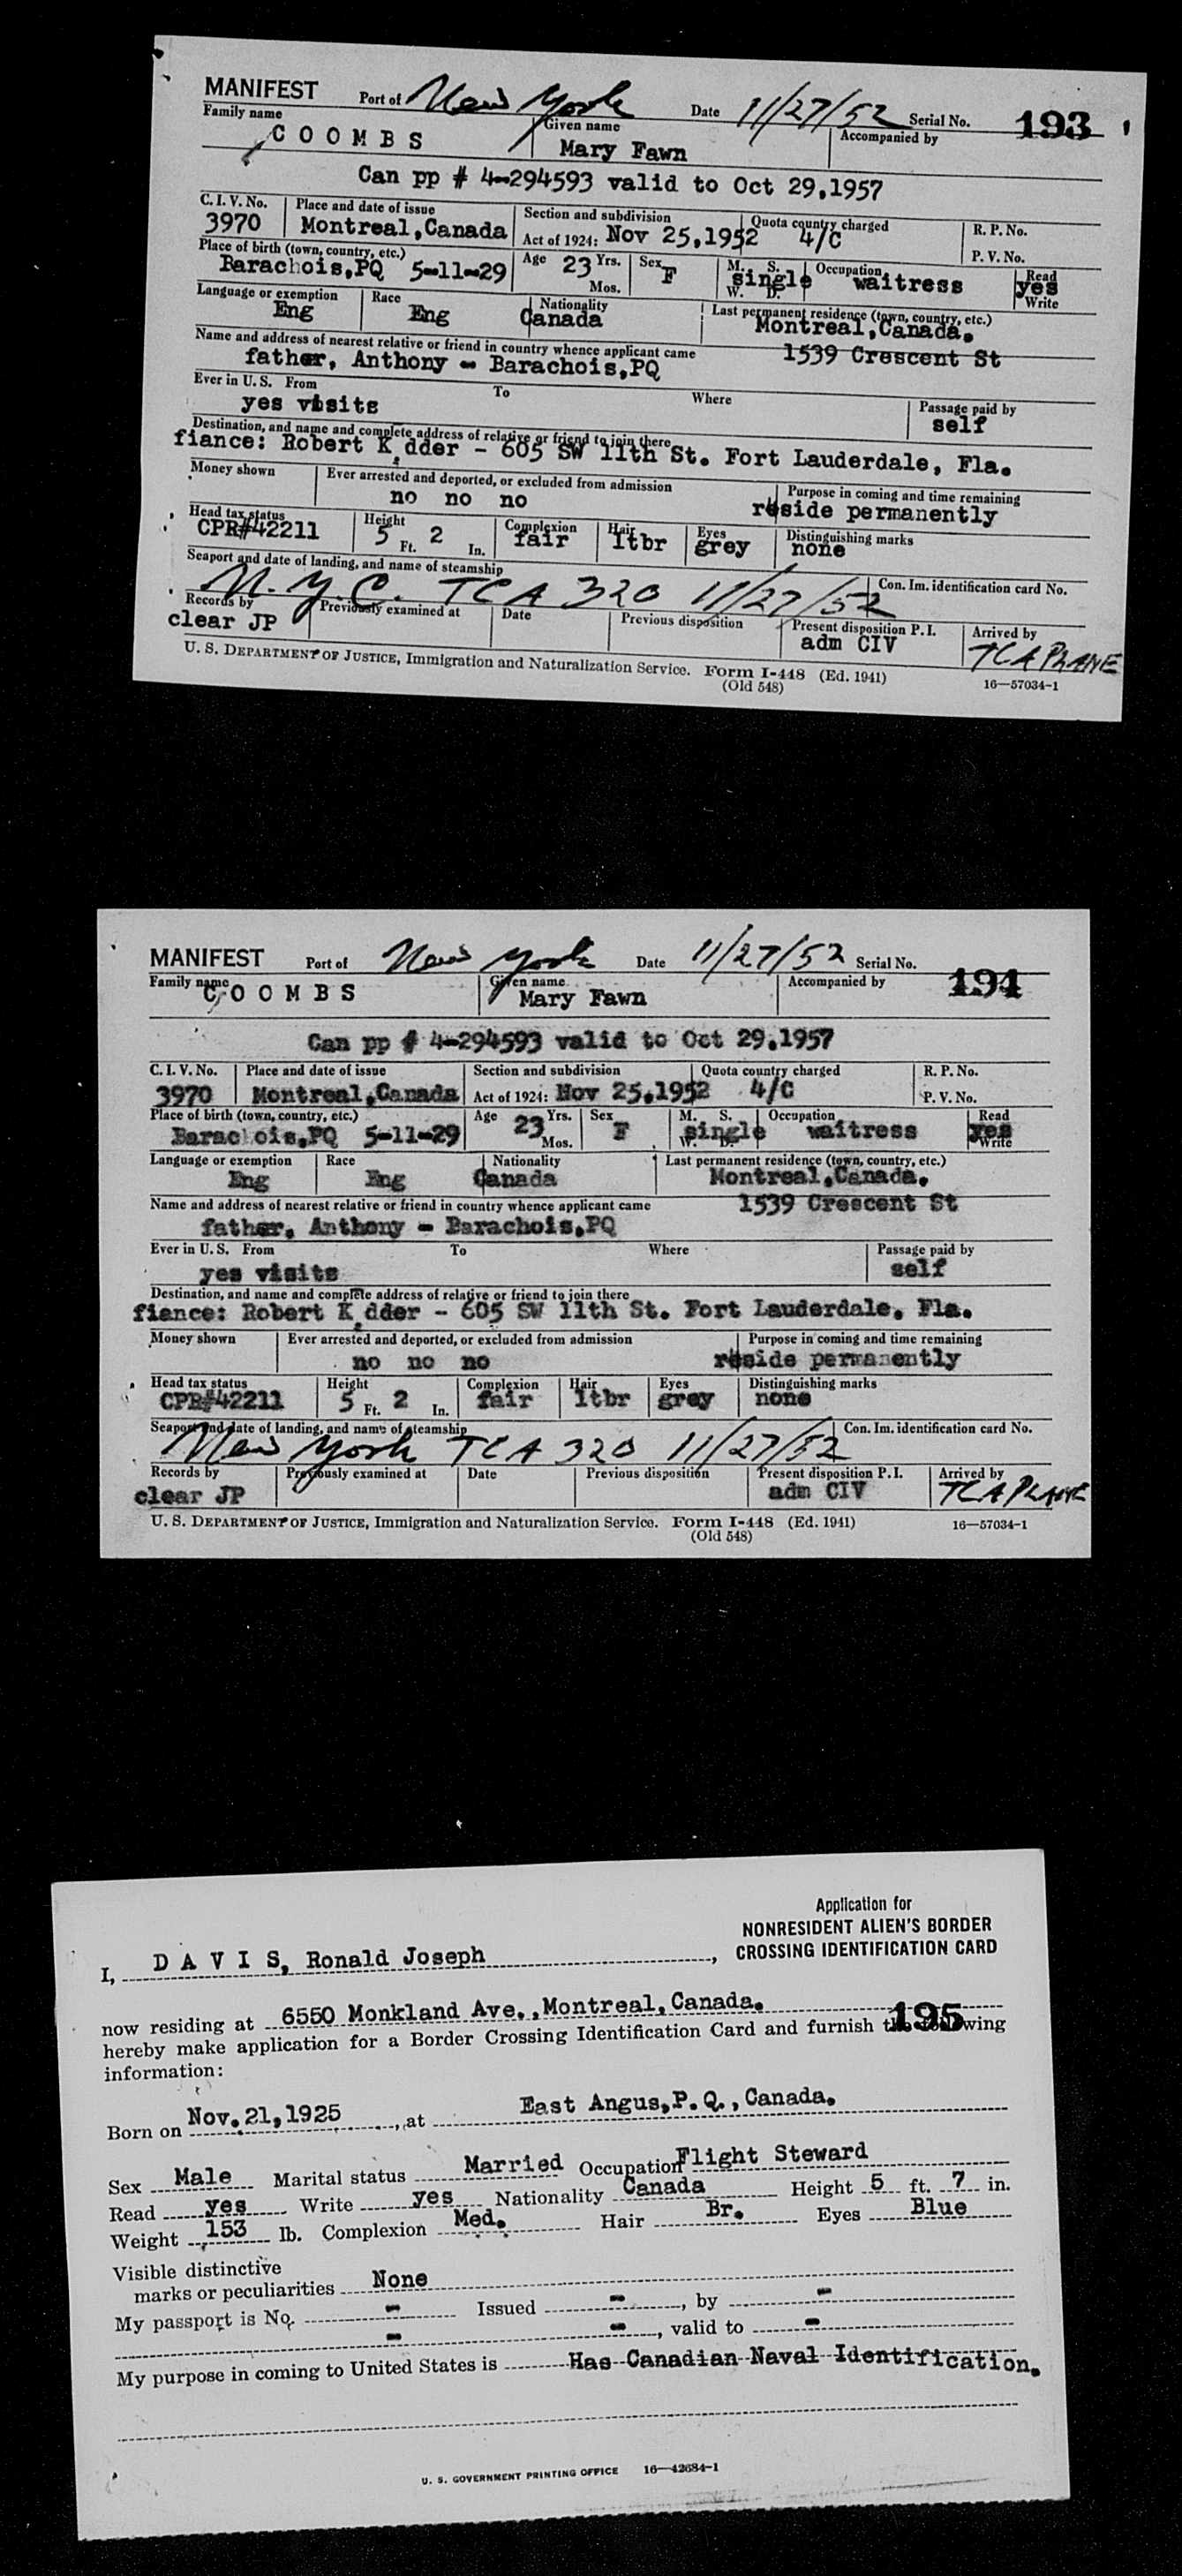 MANIFEST Port of New York Date 11/27/52 Serial No. 193
Family name Given name Accompanied by
COOMBS Mary Fawn
Can pp # 4-294593 valid to Oct 29,1957
C. I. V. No. Place and date of issue Section and subdivision Quota country charged R. P. No.
3970 Montreal,Canada Act of 1924: Nov 25,1952 4/C P. V. No.
Place of birth (town, country, etc.) Age 23 Yrs. Sex M. S. Occupation Read
Barachois,PQ 5-11-29 Mos. F single waitress yes
W. D. Write
Language or exemption Race Nationality Last permanent residence (town, country, etc.)
Eng Eng Canada Montreal,Canada.
Name and address of nearest relative or friend in country whence applicant came 1539 Crescent St
father, Anthony - Barachois,PQ
Ever in U. S. From To Where Passage paid by
yes visits self
Destination, and name and complete address of relative or friend to join there
fiance: Robert K dder - 605 SW 11th St. Fort Lauderdale, Fla.
Money shown Ever arrested and deported, or excluded from admission Purpose in coming and time remaining
no no no reside permanently
Head tax status Height Complexion Hair Eyes Distinguishing marks
CPR#42211 5 Ft. 2 In. fair ltbr grey none
Seaport and date of landing, and name of steamship Con. Im. identification card No.
N.Y.C. TCA 320 11/27/52
Records by Previously examined at Date Previous disposition Present disposition P. I. Arrived by
clear JP adm CIV TCA PLANE
U. S. DEPARTMENT OF JUSTICE, Immigration and Naturalization Service. Form I-448 (Ed. 1941) 16—57034-1
(Old 548)
MANIFEST Port of New York Date 11/27/52 Serial No. 194
Family name Given name Accompanied by
COOMBS Mary Fawn
Can pp # 4-294593 valid to Oct 29,1957
C. I. V. No. Place and date of issue Section and subdivision Quota country charged R. P. No.
3970 Montreal,Canada Act of 1924: Nov 25,1952 4/C P. V. No.
Place of birth (town, country, etc.) Age 23 Yrs. Sex M. S. Occupation Read
Barachois,PQ 5-11-29 Mos. F single waitress yes
W. D. Write
Language or exemption Race Nationality Last permanent residence (town, country, etc.)
Eng Eng Canada Montreal,Canada.
Name and address of nearest relative or friend in country whence applicant came 1539 Crescent St
father, Anthony - Barachois,PQ
Ever in U. S. From To Where Passage paid by
yes visits self
Destination, and name and complete address of relative or friend to join there
fiance: Robert K dder - 605 SW 11th St. Fort Lauderdale, Fla.
Money shown Ever arrested and deported, or excluded from admission Purpose in coming and time remaining
no no no reside permanently
Head tax status Height Complexion Hair Eyes Distinguishing marks
CPR#42211 5 Ft. 2 In. fair ltbr grey none
Seaport and date of landing, and name of steamship Con. Im. identification card No.
New York TCA 320 11/27/52
Records by Previously examined at Date Previous disposition Present disposition P. I. Arrived by
clear JP adm CIV TCA PLANE
U. S. DEPARTMENT OF JUSTICE, Immigration and Naturalization Service. Form I-448 (Ed. 1941) 16—57034-1
(Old 548)
Application for
NONRESIDENT ALIEN'S BORDER
CROSSING IDENTIFICATION CARD
I, DAVIS, Ronald Joseph,
now residing at 6550 Monkland Ave.,Montreal,Canada. 195
hereby make application for a Border Crossing Identification Card and furnish the following
information:
Born on Nov.21,1925, at East Angus,P.Q.,Canada.
Sex Male Marital status Married Occupation Flight Steward
Read yes Write yes Nationality Canada Height 5 ft. 7 in.
Weight 153 lb. Complexion Med. Hair Br. Eyes Blue
Visible distinctive
marks or peculiarities None
My passport is No. - Issued -, by -
- -, valid to -
My purpose in coming to United States is Has Canadian Naval Identification.
U. S. GOVERNMENT PRINTING OFFICE 16—42684-1